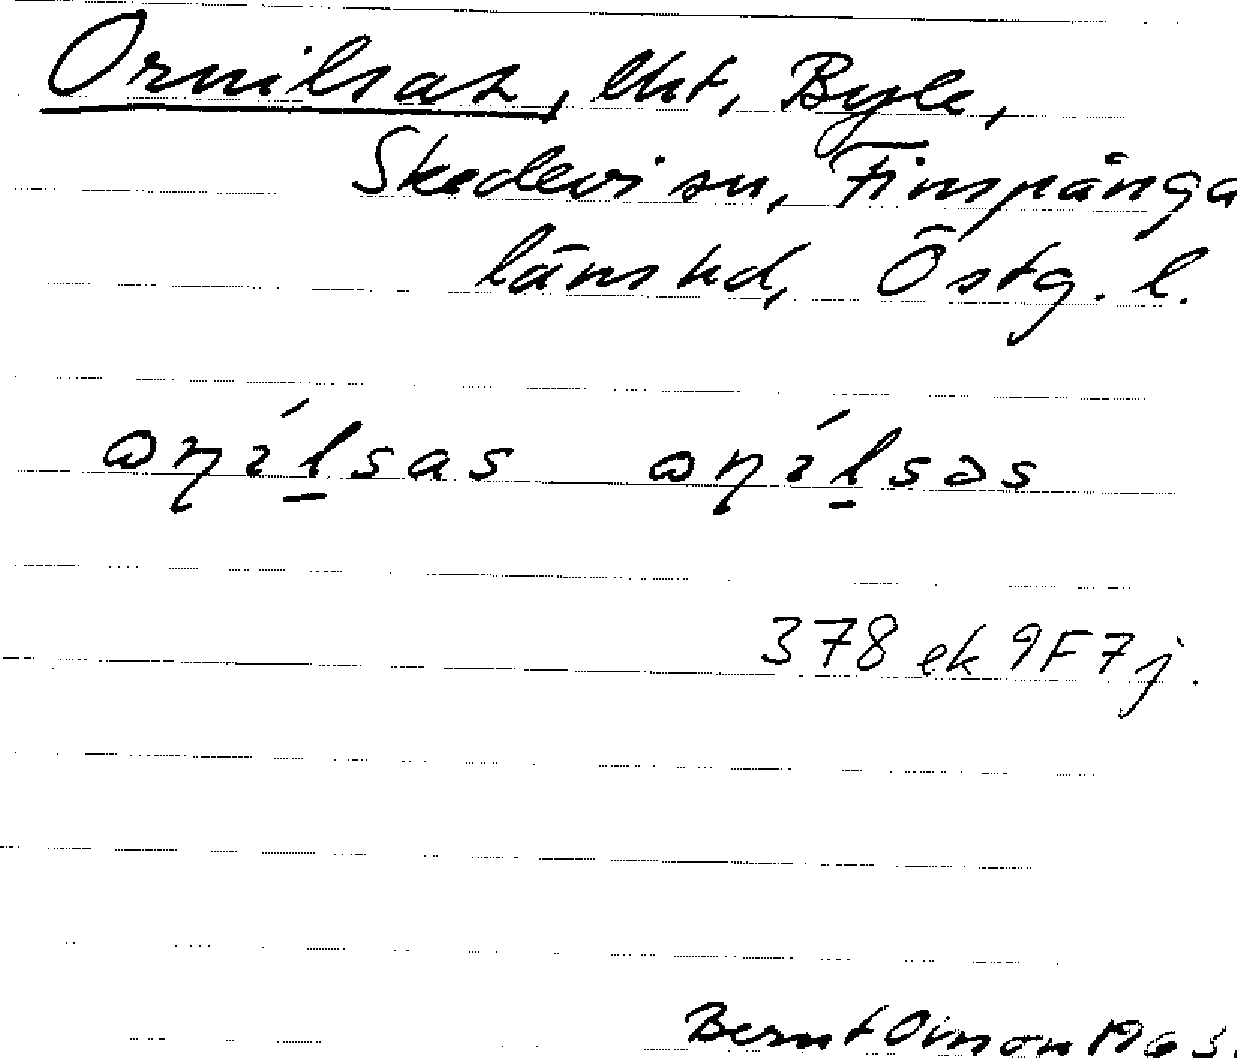 Ornilsas, lht, Byle,
Skedevi sn, Finspånga
läns hd, Östg. l.
ɷɳílsas ɷɳílsəs
378 ek 9F7j.
Bernt Olsson 1963.